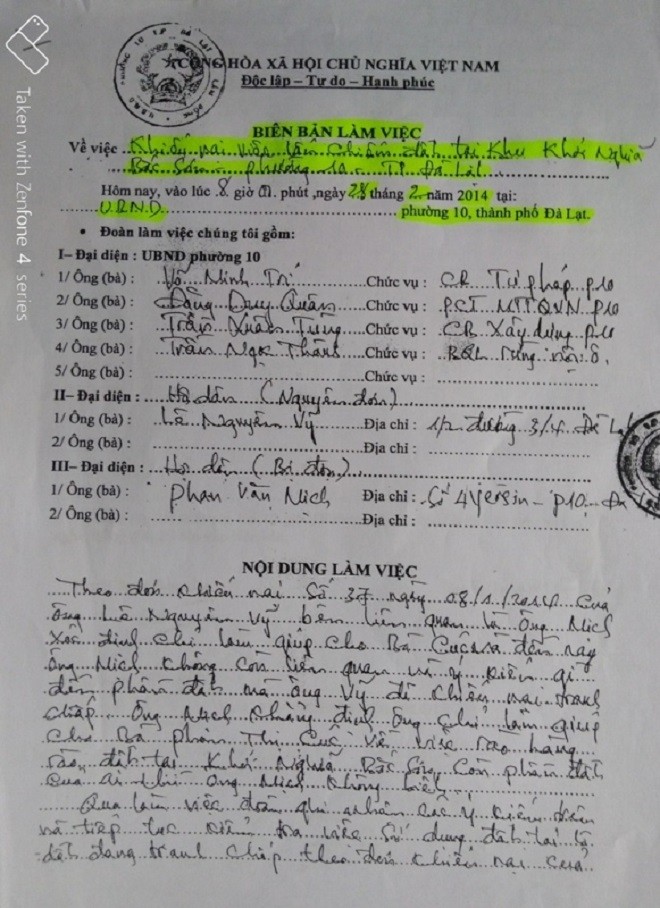 CỘNG HÒA XÃ HỘI CHỦ NGHĨA VIỆT NAM
Độc lập – Tự do – Hạnh phúc
BIÊN BẢN LÀM VIỆC
Về việc Khiếu nại việc lấn chiếm đất tại Khu Khởi Nghĩa
Bắc Sơn, phường 10 - TP. Đà Lạt
Hôm nay, vào lúc 8 giờ phút, ngày 28 tháng 2 năm 2014 tại:
U.B.N.D phường 10, thành phố Đà Lạt.
• Đoàn làm việc chúng tôi gồm:
I– Đại diện : UBND phường 10
1/ Ông (bà) : Võ Minh Trí Chức vụ : CB Tư pháp p10
2/ Ông (bà) : Đặng Duy Quân Chức vụ : PCT MTTQVN P10
3/ Ông (bà) : Trần Xuân Tùng Chức vụ : CB Xây dựng p10
4/ Ông (bà) : Trần Ngọc Thành Chức vụ : BQL rừng
5/ Ông (bà) : Chức vụ :
II– Đại diện : Hộ dân (Nguyên đơn)
1/ Ông (bà) : Lê Nguyên Vỹ Địa chỉ : 1/2 đường 3/4 Đà Lạt
2/ Ông (bà) : Địa chỉ :
III– Đại diện : Hộ dân (Bị đơn)
1/ Ông (bà) : Phan Văn Mich Địa chỉ : Số 4 Yersin - P10
2/ Ông (bà) : Địa chỉ :
NỘI DUNG LÀM VIỆC
Theo đơn khiếu nại Số 37 ngày 08/1/2014 Của
ông Lê Nguyên Vỹ bên liên quan là Ông Mich
Xác định chỉ làm giúp Cho Bà Cúc và đến nay
ông Mich không còn liên quan và ý kiến gì
đến phần đất mà ông Vỹ đi khiếu nại tranh
chấp. Ông Mich khẳng định ông chỉ làm giúp
cho Bà Phan Thị Cúc việc rào hàng
rào, đất tại Khởi Nghĩa Bắc Sơn, Còn phần đất
của ai thì ông Mich không biết
Qua làm việc đoàn ghi nhận các ý kiến trên
và tiếp tục kiểm tra việc sử dụng đất tại lô
đất đang tranh chấp theo đơn khiếu nại của
Taken with Zenfone 4 series